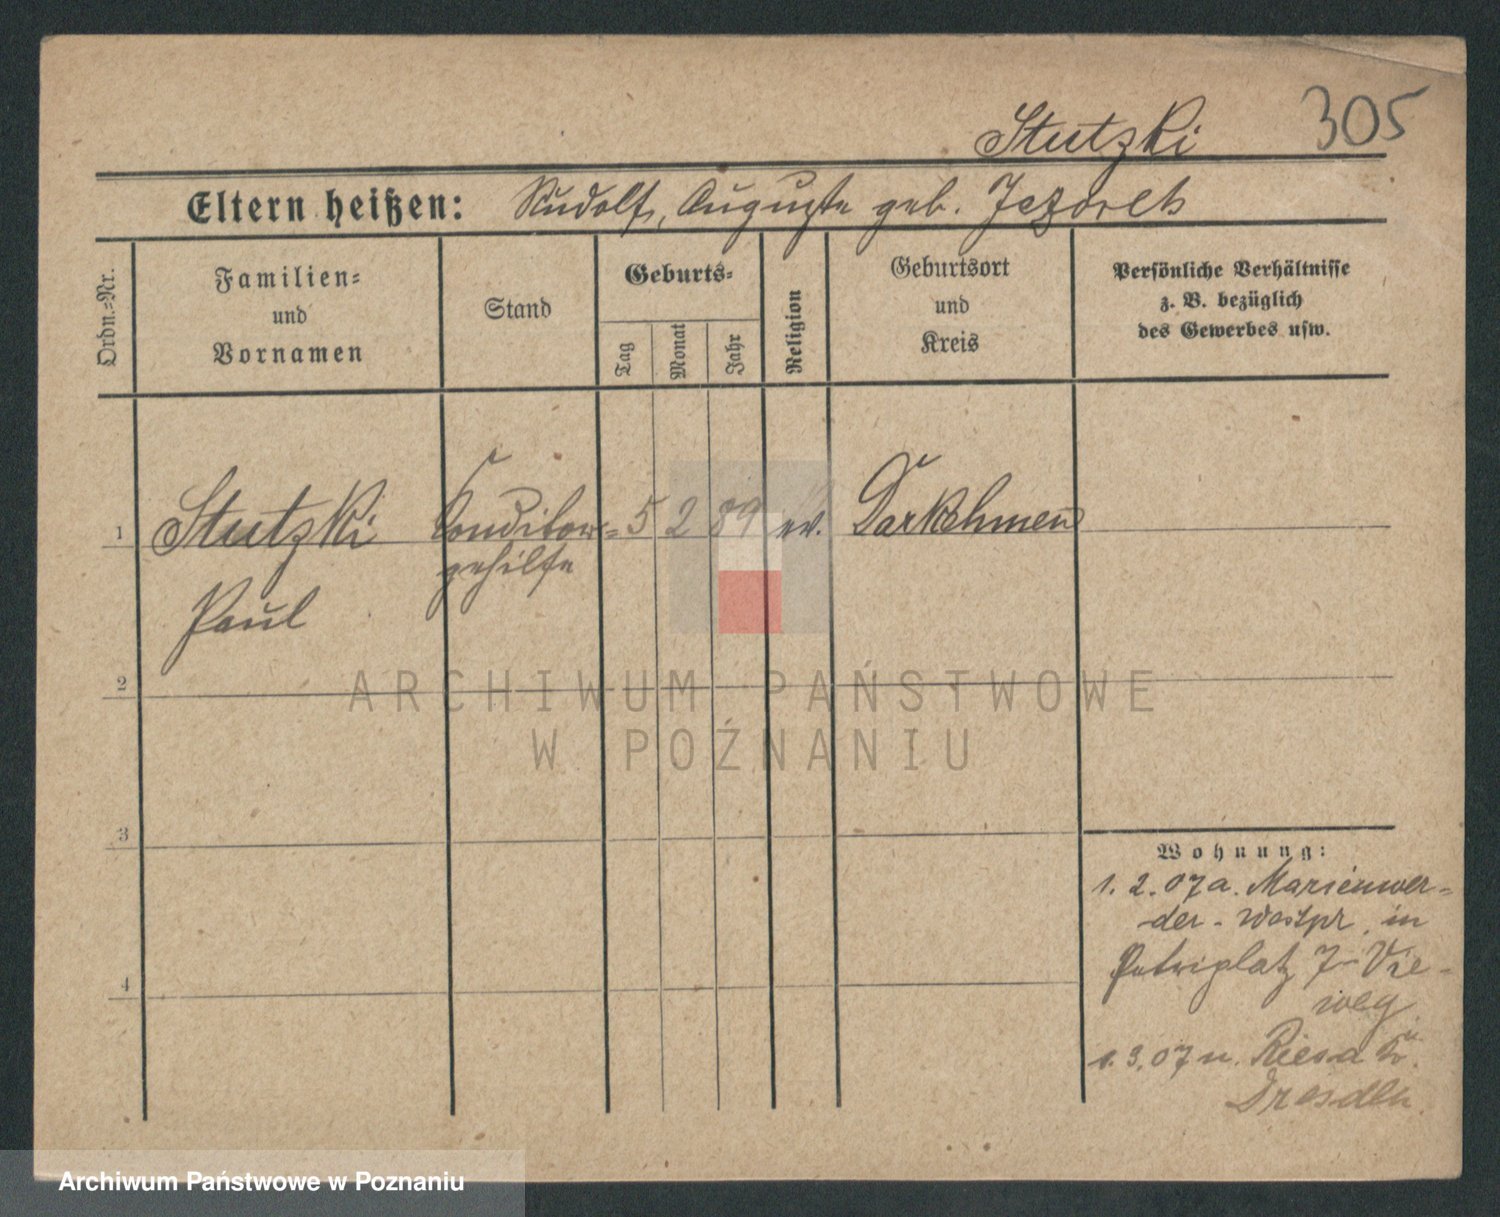 305
Stutzki
Eltern heißen: Rudolf, Auguste geb. Jezorek
Ordn.=Nr.
Familien=
und
Vornamen
Stand
Geburts=
Tag
Monat
Jahr
Religion
Geburtsort
und
Kreis
Persönliche Verhältnisse
z. B. bezüglich
des Gewerbes usw.
1 Stutzki Conditor= 5 2 89 ev. Darkehmen
gehilfe
Paul
2
3
4
Wohnung:
1.2.07 a. Marienwer=
der - Westpr. in
Petriplatz 7 - Vie-
weg
1.3.07 n. Riesa
Dresden
ARCHIWUM PAŃSTWOWE
W POZNANIU
Archiwum Państwowe w Poznaniu